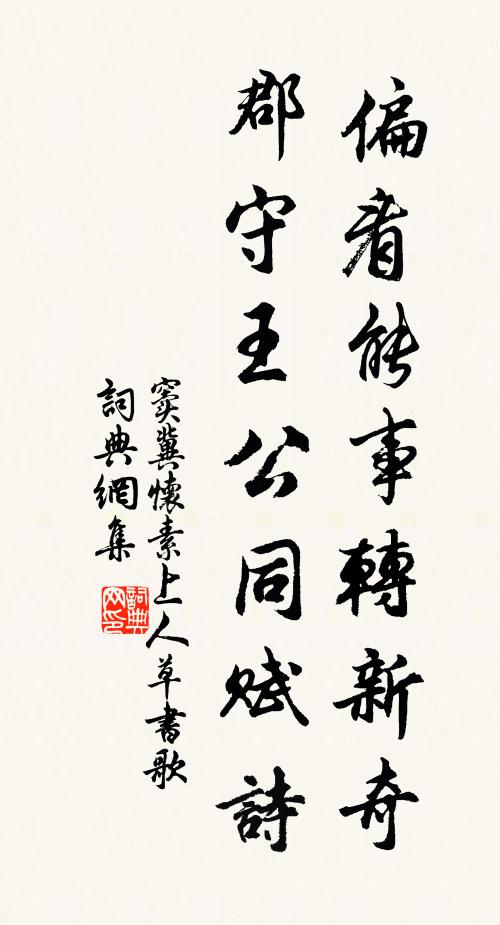 偏看能事轉新奇
郡守王公同賦詩
竇冀懷素上人草書歌
詞典網集
詞典网印